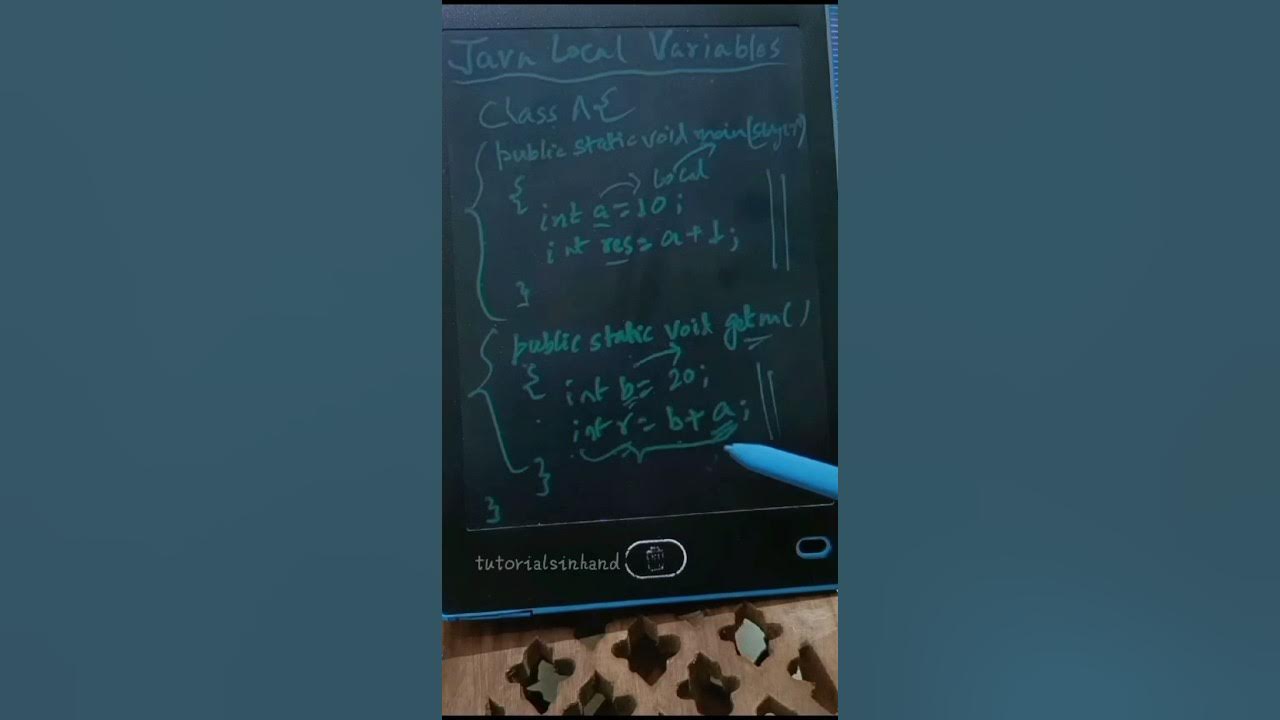 Java Local Variables
Class A{
public static void main(
Local
{
int a=10;
int res= a+1;
}
public static void getm()
{
int b= 20;
int r= b+ a;
}
}
tutorialsinhand